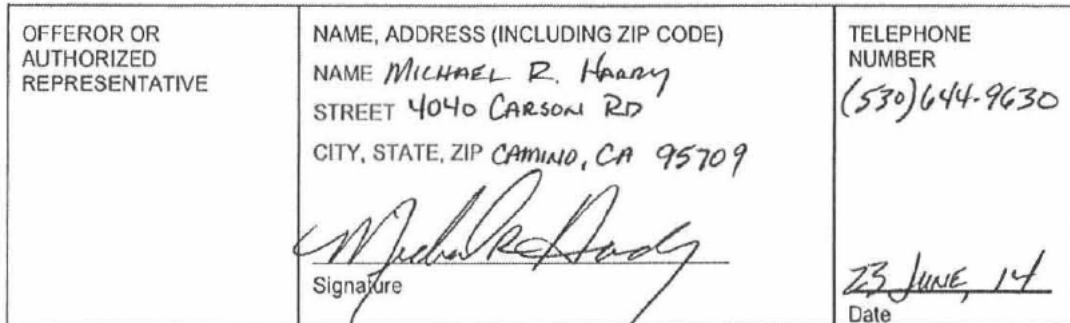 OFFEROR OR
AUTHORIZED
REPRESENTATIVE
NAME, ADDRESS (INCLUDING ZIP CODE)
NAME MICHAEL R.
STREET 4040 CARSON RD
CITY, STATE, ZIP CAMINO, CA 95709
Signature
TELEPHONE
NUMBER
(530)644-9630
23 JUNE, 14
Date